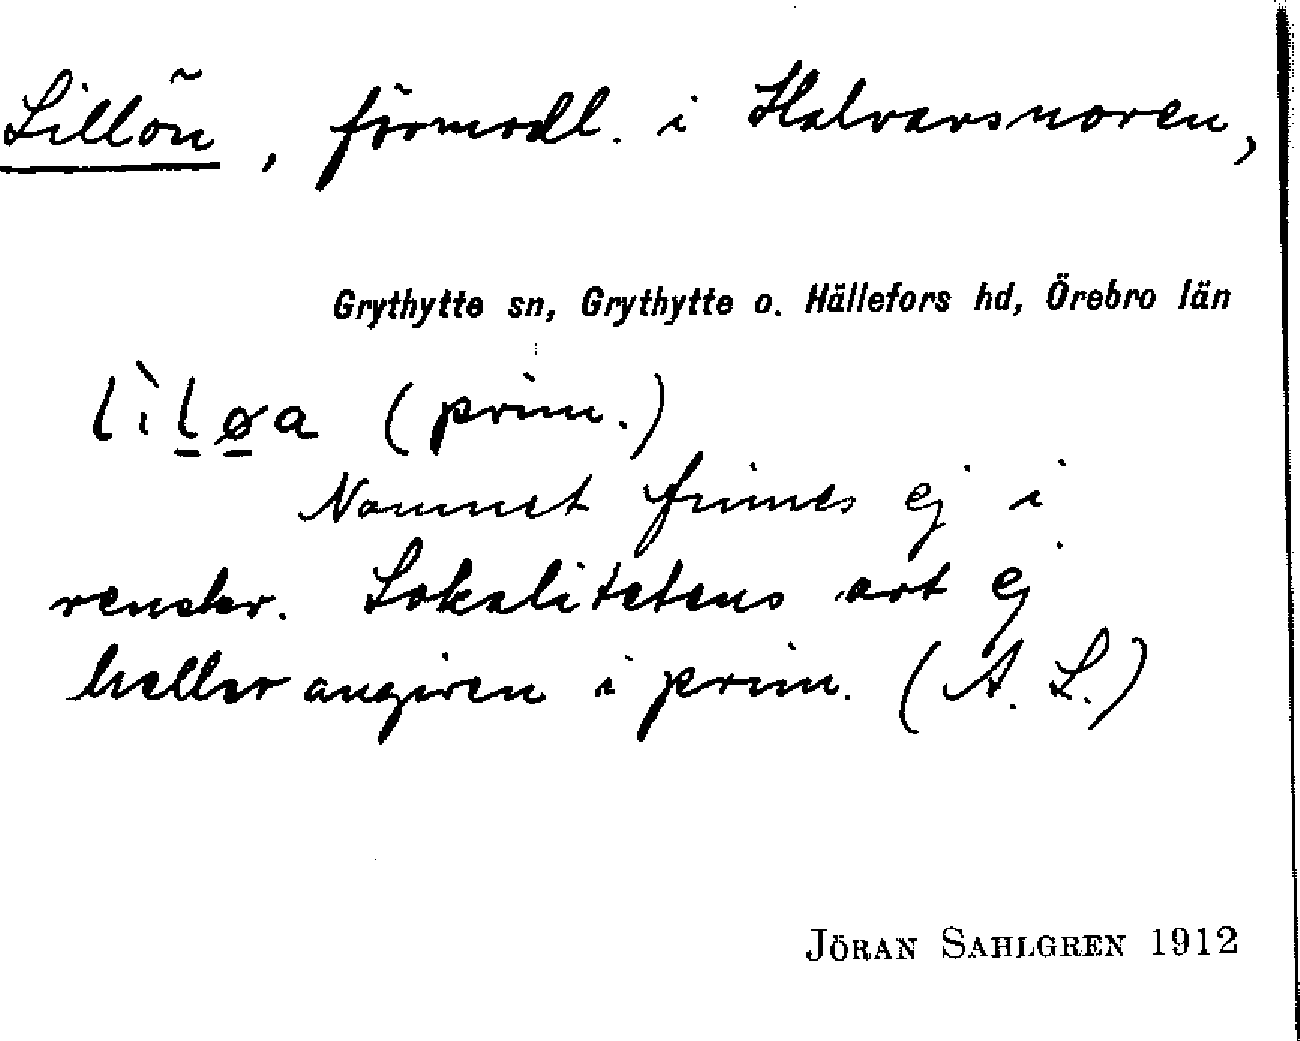 Lillön, förmodl. i Halvarsnoren,
Grythytte sn, Grythytte o. Hällefors hd, Örebro län
lìl̲ø̲a (prim.)
Namnet finnes ej i
renskr. Lokalitetens art ej
heller angiven i prim. (A. L.)
JÖRAN SAHLGREN 1912